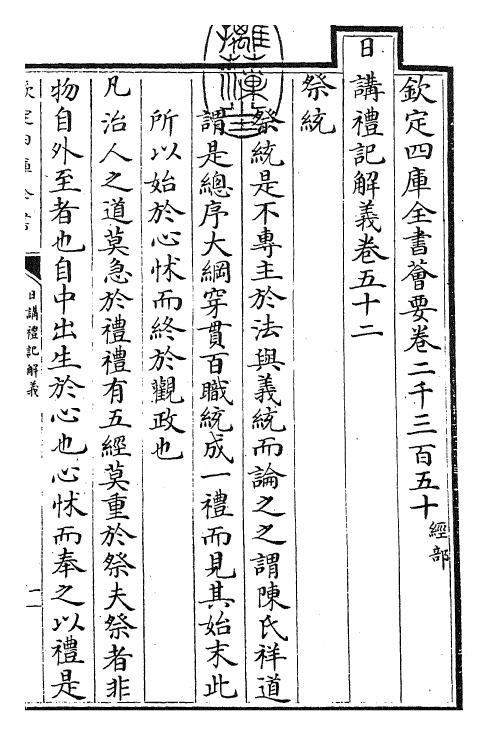 欽定四庫全書薈要卷二千三百五十 經部
日講禮記解義卷五十二
祭統
祭統是不專主於法與義統而論之之謂陳氏祥道
謂是總序大綱穿貫百職統成一禮而見其始末此
所以始於心怵而終於觀政也
凡治人之道莫急於禮禮有五經莫重於祭夫祭者非
物自外至者也自中出生於心也心怵而奉之以禮是
日講禮記解義
一